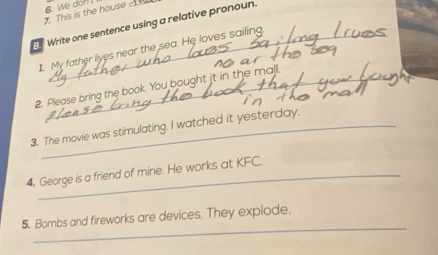 6. We don't
7. This is the house
B. Write one sentence using a relative pronoun.
1. My father lives near the sea. He loves sailing.
My father who loves sailing lives
near the sea
2. Please bring the book. You bought it in the mall.
please bring the book that you bought
in the mall
3. The movie was stimulating. I watched it yesterday.
4. George is a friend of mine. He works at KFC.
5. Bombs and fireworks are devices. They explode.